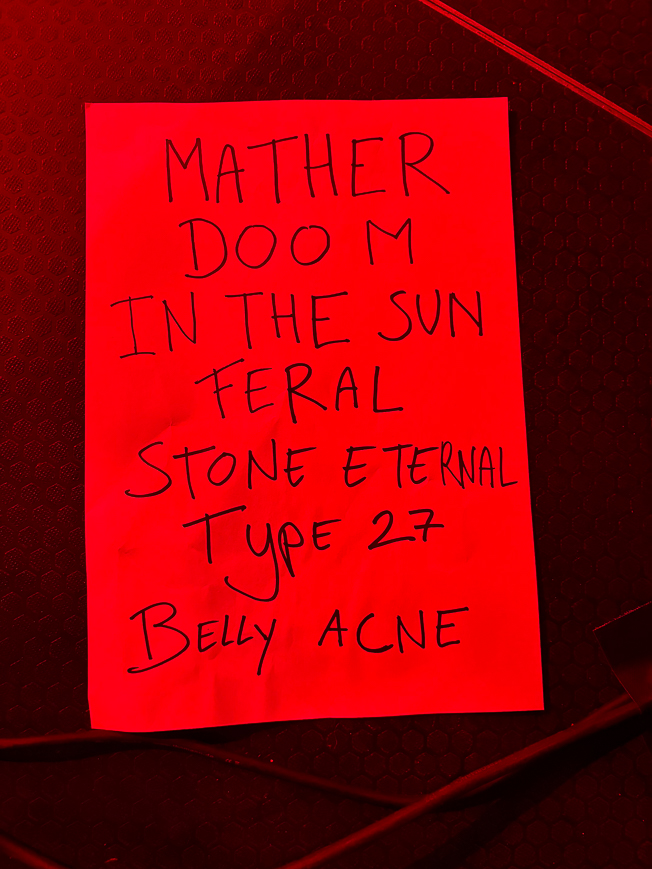 MATHER
DOOM
IN THE SUN
FERAL
STONE ETERNAL
TYPE 27
BELLY ACNE